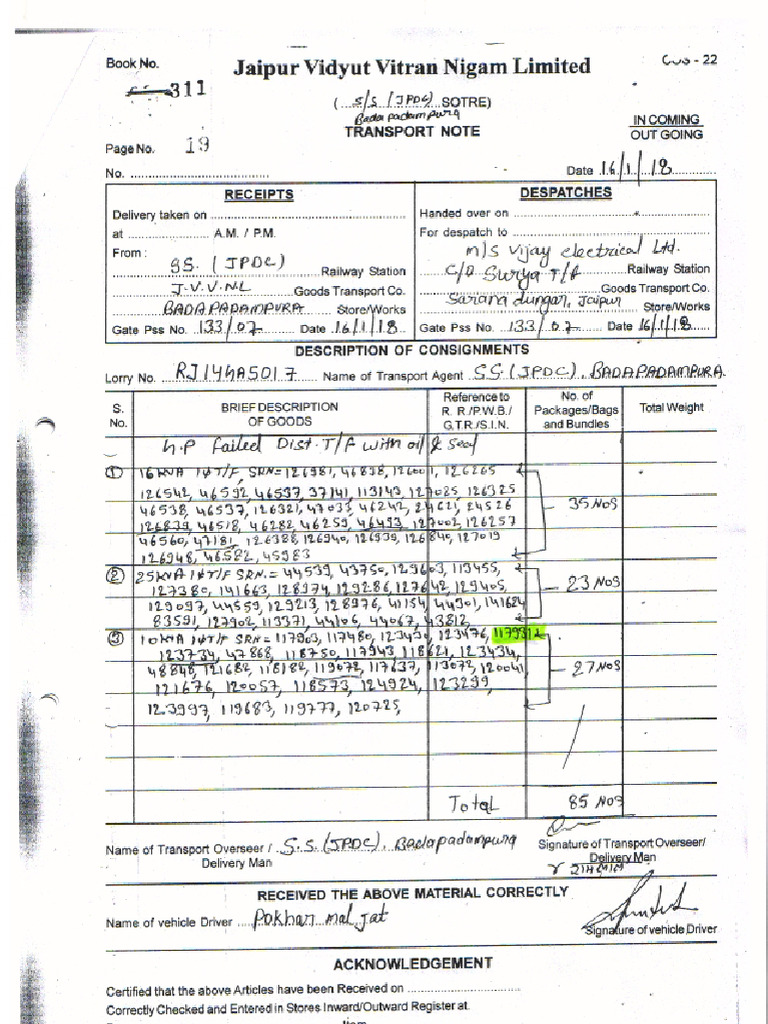 Book No. Jaipur Vidyut Vitran Nigam Limited CUS - 22
311 (S/S (JPDC) SOTRE)
Badapadampura
TRANSPORT NOTE
IN COMING
OUT GOING
Page No. 19
No. Date 16/1/18
RECEIPTS
Delivery taken on
at A.M. / P.M.
From :
SS. (JPDC) Railway Station
J.V.V.NL Goods Transport Co.
BADAPADAMPURA Store/Works
Gate Pss No. 133/02 Date 16/1/18
DESPATCHES
Handed over on
For despatch to
M/S Vijay electrical Ltd.
C/O Surya T/F Railway Station
Goods Transport Co.
Sarana dungar, Jaipur
Store/Works
Gate Pss No. 133/02 Date 16/1/18
DESCRIPTION OF CONSIGNMENTS
Lorry No. RJ14GA5017 Name of Transport Agent S.S. (JPDC), BADAPADAMPURA
S. No. BRIEF DESCRIPTION OF GOODS Reference to R. R./P.W.B./ G.T.R./S.I.N. No. of Packages/Bags and Bundles Total Weight
G.P failed Dist. T/F with oil & Seal
① 16 KVA 1φ T/F SRN= 126981, 46838, 126001, 126265
126542, 46592, 46537, 37141, 113143, 127025, 126325 35 Nos
46538, 46537, 126321, 47033, 46242, 24621, 24526
126839, 46518, 46282, 46259, 46493, 127002, 126257
46560, 47181, 126388, 126940, 126939, 126840, 127019
126948, 46582, 45983
② 25KVA 1φ T/F SRN.= 44539, 43750, 129603, 113455,
127380, 141663, 128974, 129286, 127642, 129405, 23 Nos
129097, 44559, 129213, 128976, 41154, 44901, 141624
83591, 127902, 113371, 44106, 44067, 43812,
③ 10KVA 1φ T/F SRN= 117903, 117480, 123430, 123476, 117931
123734, 47868, 118750, 117943, 118621, 123434,
48848, 121682, 118182, 119072, 117637, 113072, 120041 27 Nos
121676, 120057, 118573, 124924, 123299
123997, 119683, 119777, 120725,
Total 85 Nos
Name of Transport Overseer / S.S. (JPDC), Badapadampura
Delivery Man
Signature of Transport Overseer/
Delivery Man
RECEIVED THE ABOVE MATERIAL CORRECTLY
Name of vehicle Driver Pokhar mal jat
Signature of vehicle Driver
ACKNOWLEDGEMENT
Certified that the above Articles have been Received on
Correctly Checked and Entered in Stores Inward/Outward Register at.